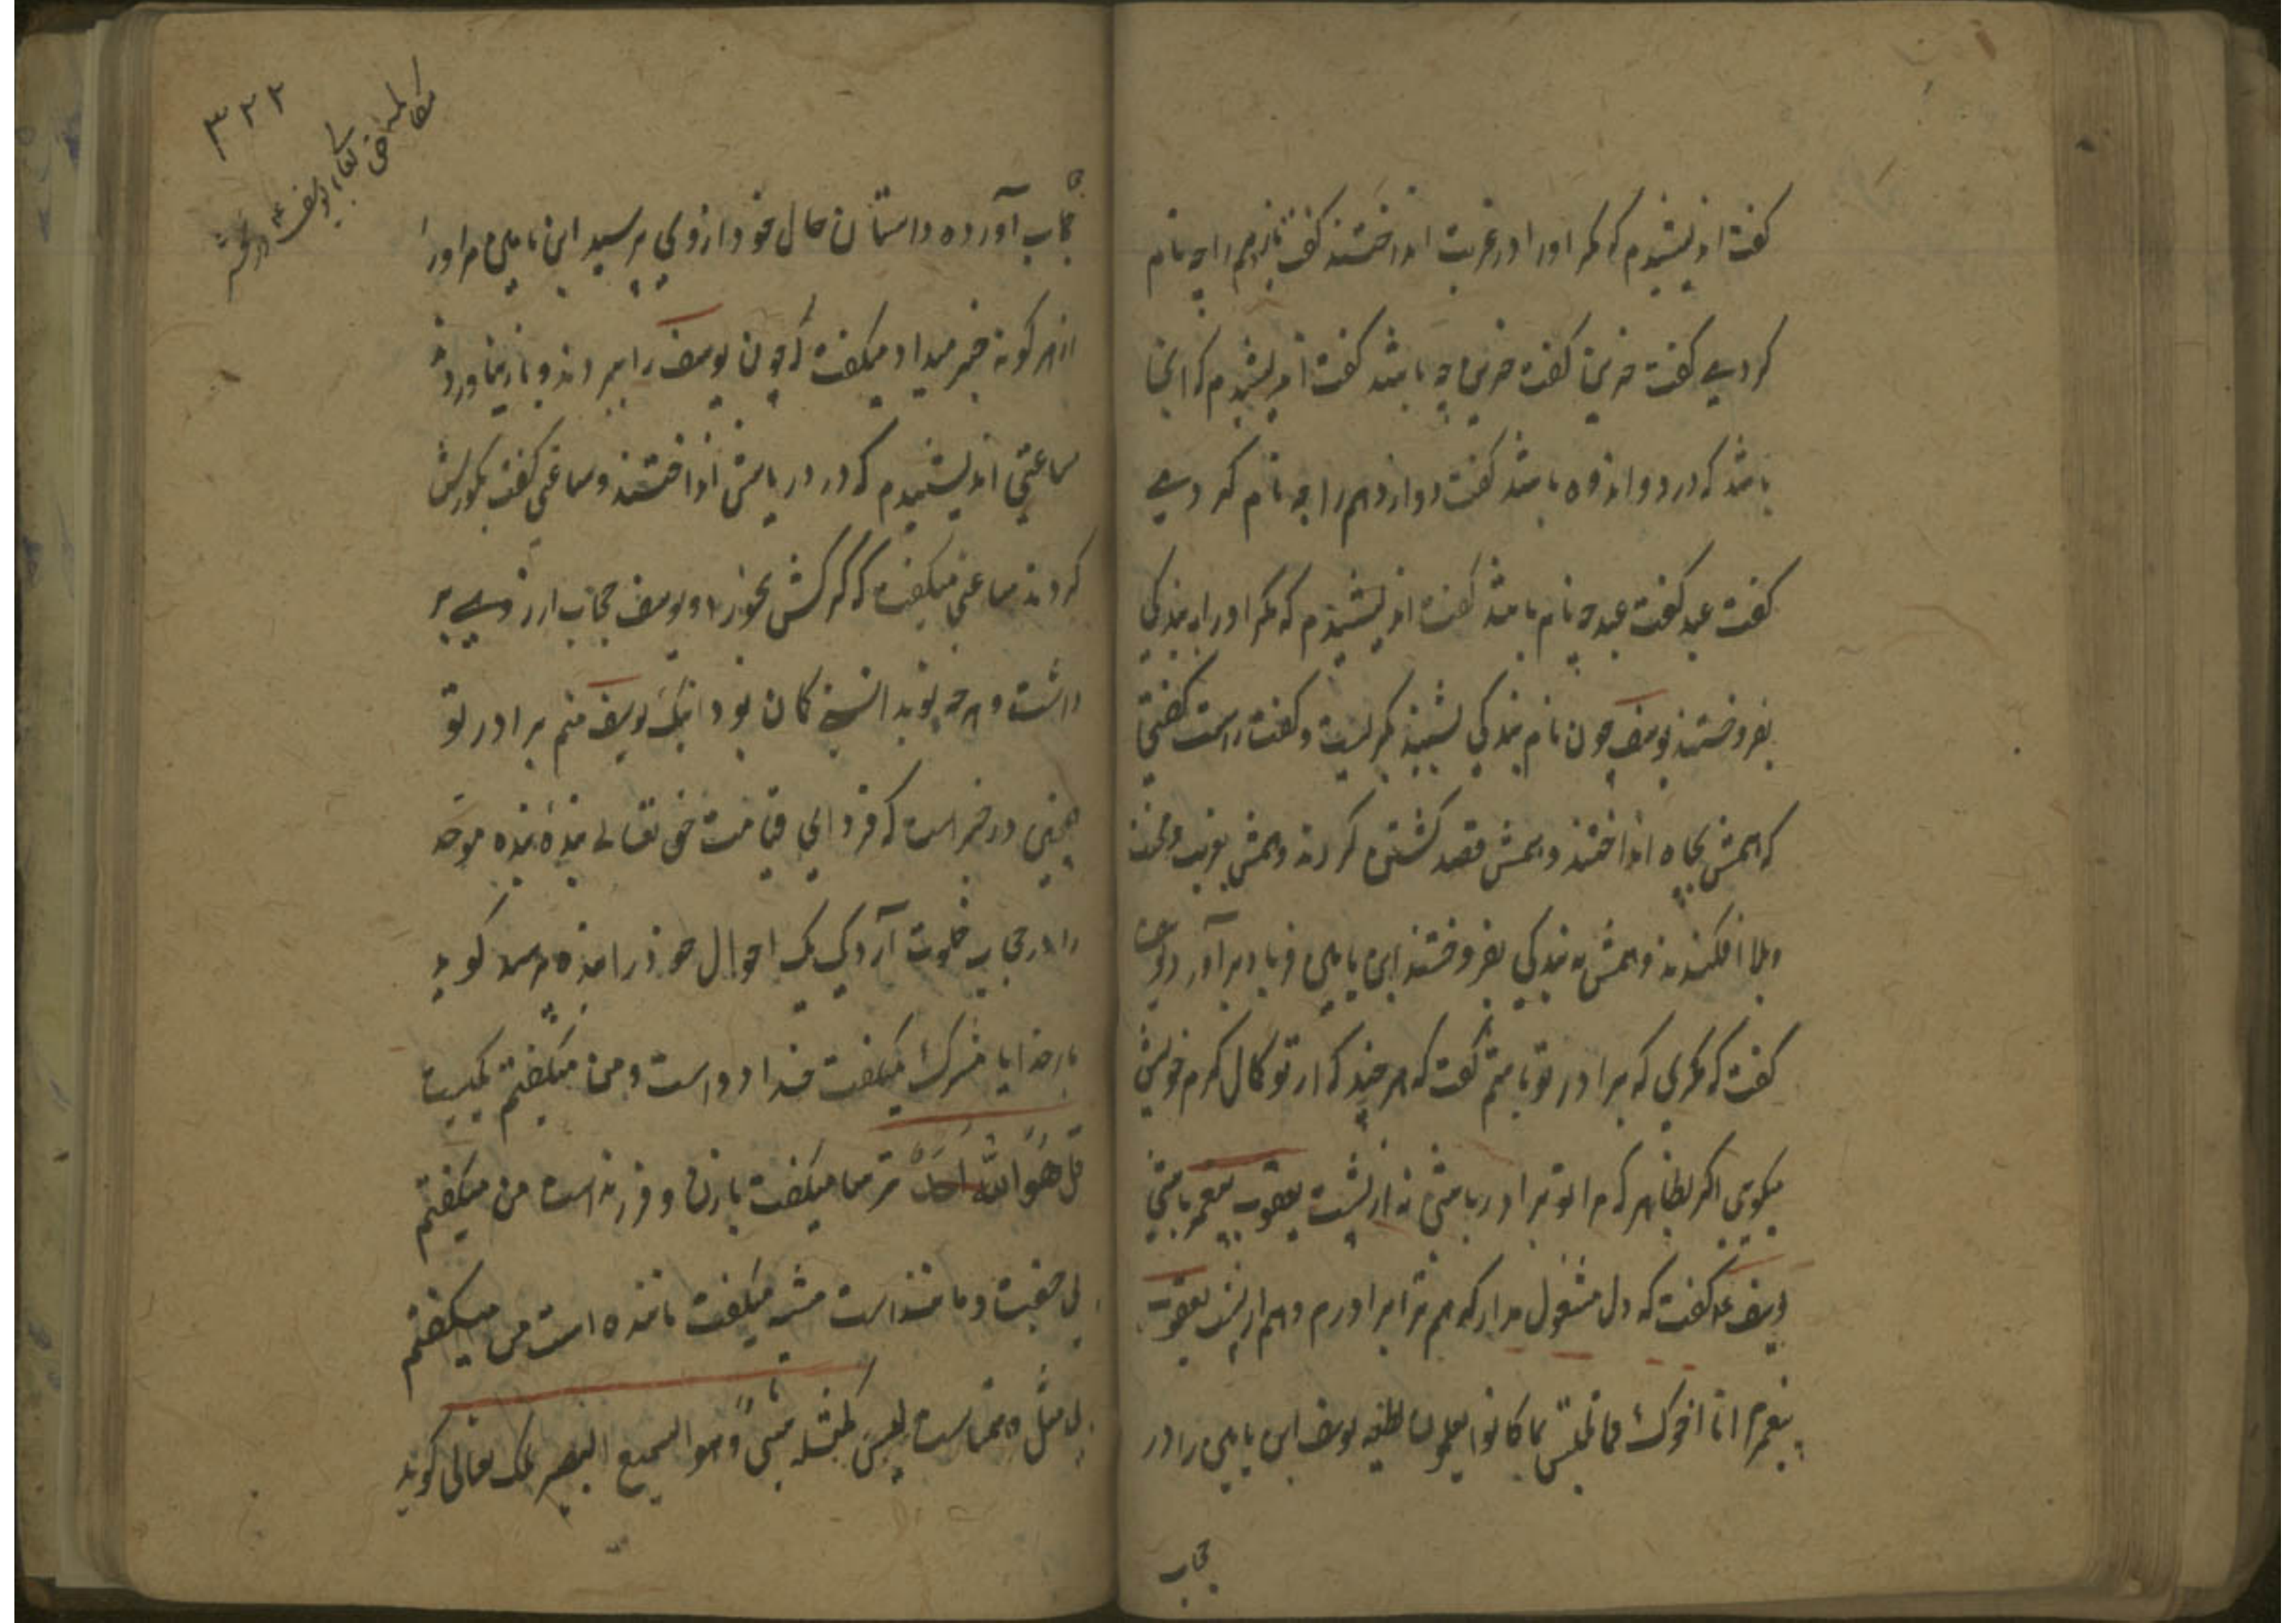 گفت اندیشیدم که مگر اورا در غربت انداختند گفت یازدهم را چه نام
کردی گفت حزین گفت حزین چه باشد گفت اندیشیدم که اینجا
باشد که درد و اندوه باشد گفت دوازدهم را چه نام کردی
گفت عبد گفت عبد چه نام باشد گفت اندیشیدم که مگر اورا به بندگی
بفروختند یوسف چون نام بندگی بشنید بگریست و گفت راست گفتی
که همش بچاه انداختند و همش قصد کشتن کردند و همش بغربت و محنت
و بلا افکندند و همش به بندگی بفروختند ابن یامین فریاد برآورد
گفت که مگر این که برادر تو باشم گفت که هر چند که از تو کمال کرم خویش
میگویی اگر بظاهر که مرا تو برادر باشی نه از پشت یعقوب پیغمبر باشی
یوسف گفت که دل مشغول مدار که هم ترا برادرم و هم از پشت یعقوب
پیغمبرم انا اخوک فلا تبتئس بما کانوا یعملون لطیفه یوسف ابن یامین را در
حجاب
۳۲۲
حجاب آورده داستان حال خود از وی پرسید ابن یامین مر اورا
از هر گونه خبر میداد میگفت که چون یوسف را ببردند و باز نیاوردند
ساعتی اندیشیدم که در دریاش انداختند و ساعتی گفت بگورش
کردند ساعتی میگفت که گرگش بخورد و یوسف حجاب از روی بر
داشت و هر چه بود انسی کان بود اینک یوسف منم برادر تو
همچنین در خبر است که فردای قیامت حق تعالی بنده بنده موحد
را در حجاب خلوت آرد یک یک احوال خود را بنده گوید
بار خدایا مشرک میگفت خدا دو است و من میگفتم یکیست
قل هو الله احد ترسا میگفت با زن و فرزند است من میگفتم
بی جفت و مانند است مشبه میگفت ماننده است من میگفتم
بی مثل و همتاست لیس کمثله شیء و هو السمیع البصیر ملک تعالی گوید